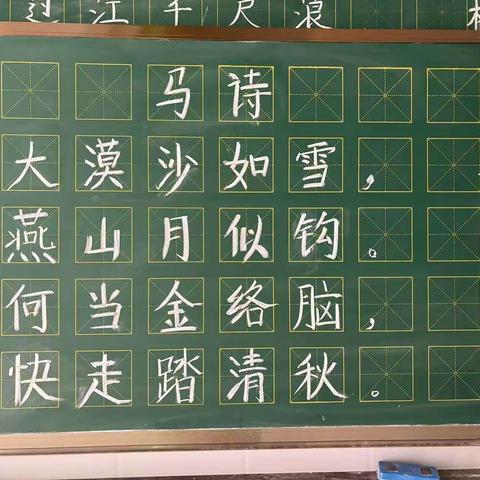 过江千尺浪
马诗
大漠沙如雪，
燕山月似钩。
何当金络脑，
快走踏清秋。